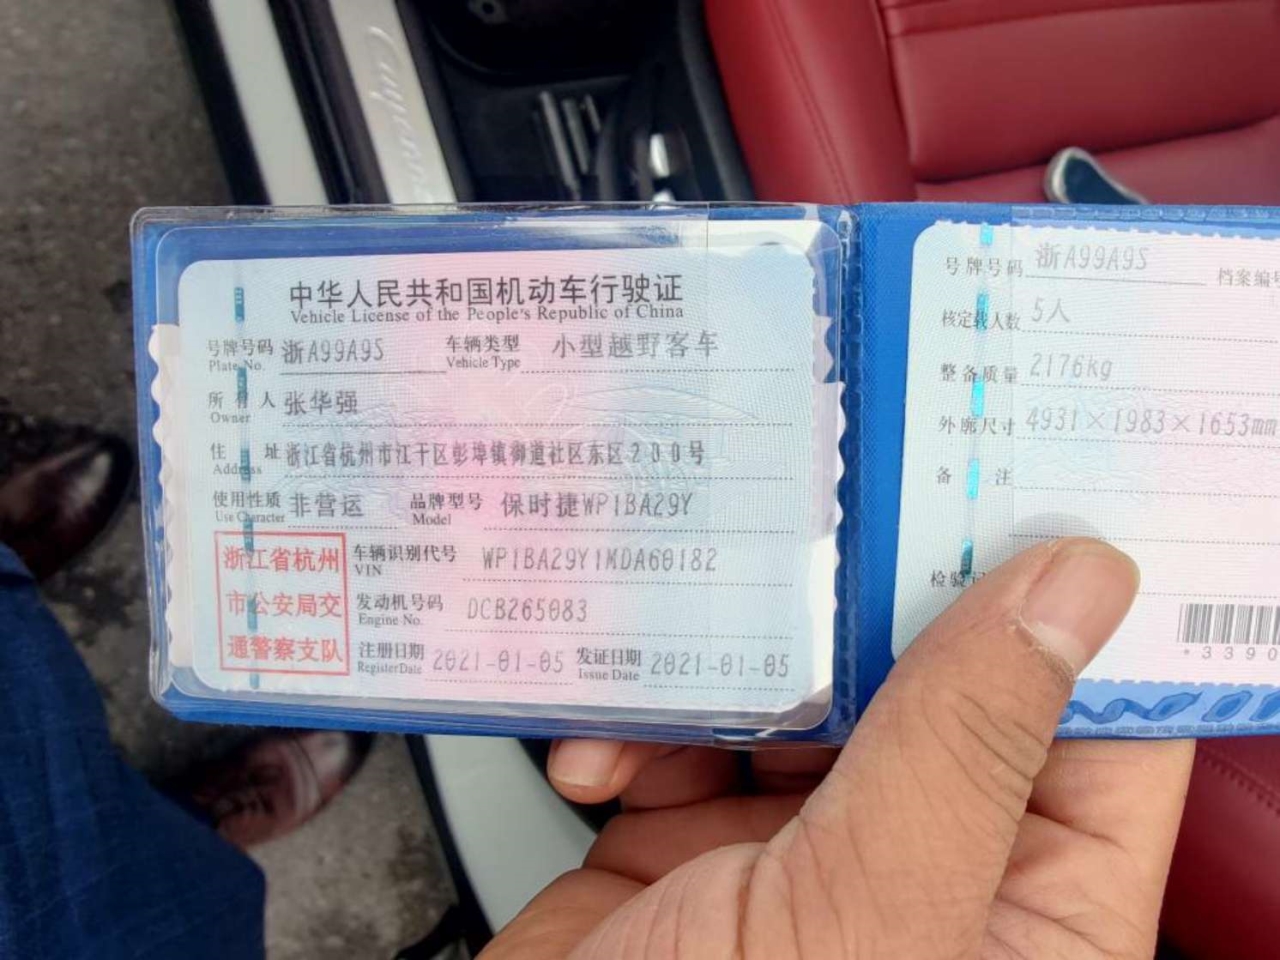 Cayenne
中华人民共和国机动车行驶证
Vehicle License of the People's Republic of China
号牌号码 浙A99A9S 车辆类型 小型越野客车
Plate No. Vehicle Type
所有人 张华强
Owner
住址 浙江省杭州市江干区彭埠镇御道社区东区200号
Address
使用性质 非营运 品牌型号 保时捷WP1BA29Y
Use Character Model
浙江省杭州
市公安局交
通警察支队
车辆识别代号 WP1BA29Y1MDA60182
VIN
发动机号码 DCB265083
Engine No.
注册日期 2021-01-05 发证日期 2021-01-05
Register Date Issue Date
号牌号码 浙A99A9S 档案编号
核定载人数 5人
整备质量 2176kg
外廓尺寸 4931×1983×1653mm
备注
检验记
*3390